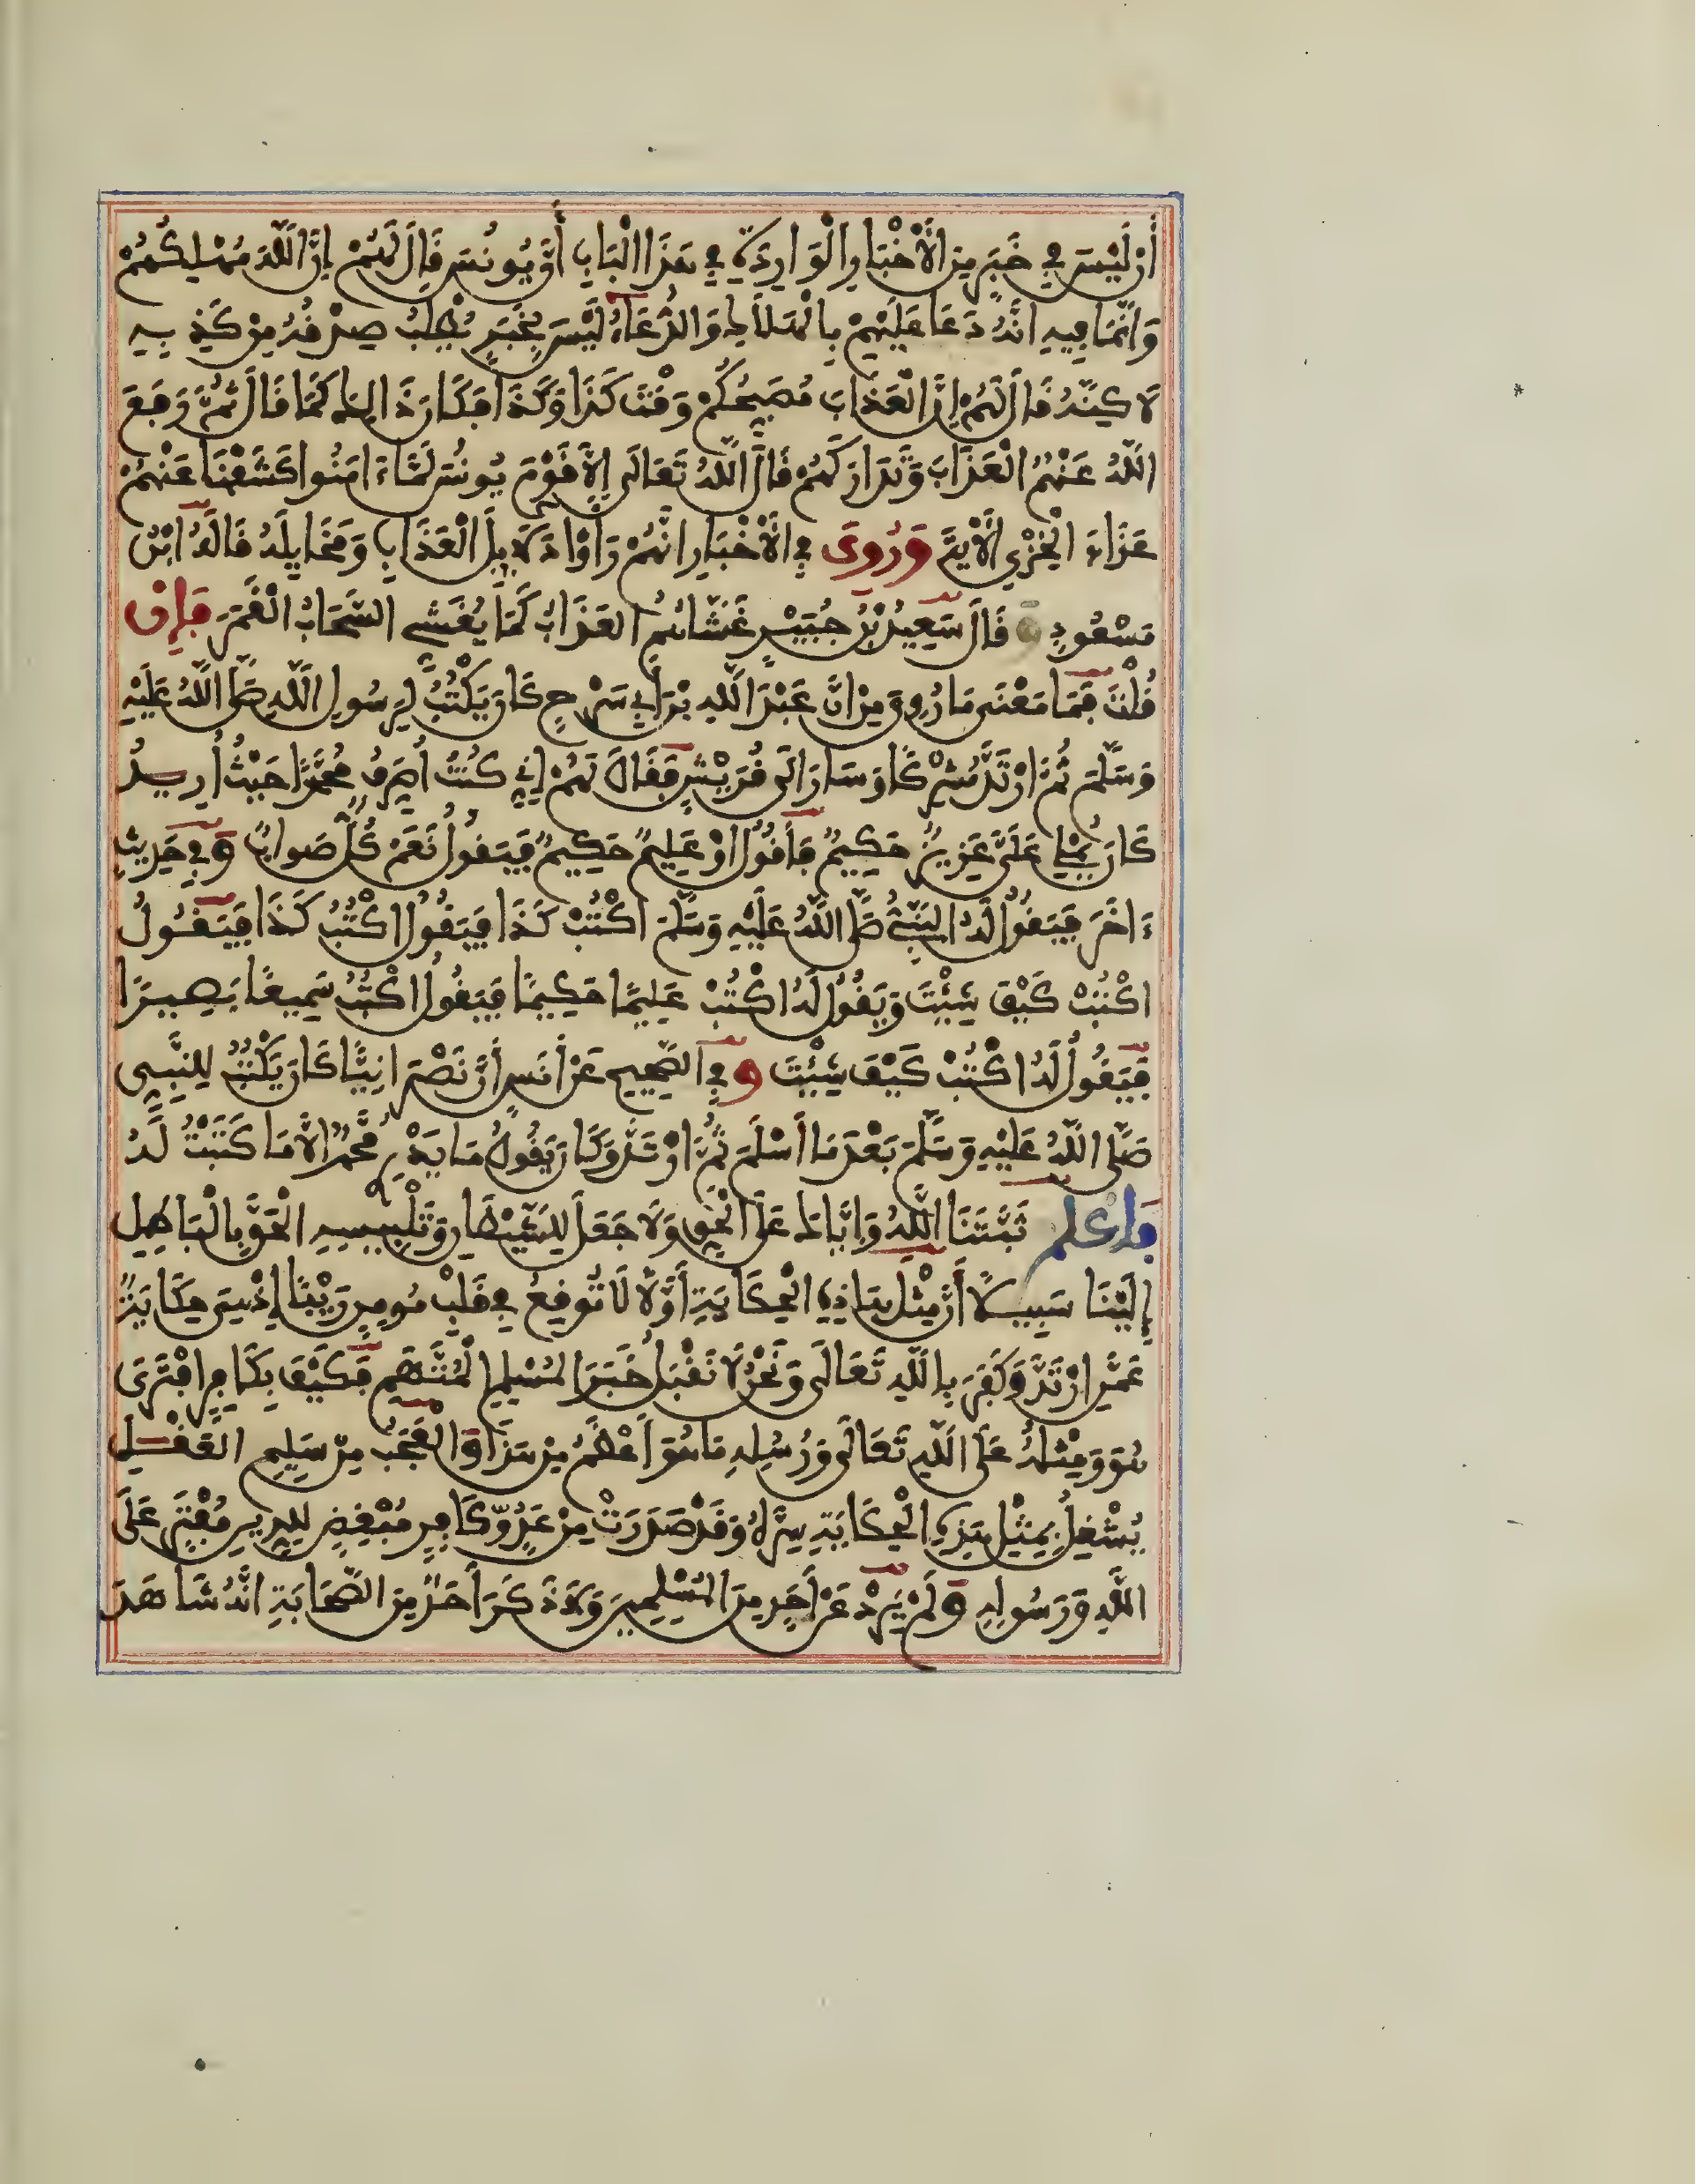 أَن لَيْسَ فِي خَبَرٍ مِنَ الْأَخْبَارِ الْوَارِدَةِ فِي هَذَا الْبَابِ أَنَّ يُونُسَ قَالَ لَهُمْ إِنَّ اللَّهَ مُهْلِكُهُمْ
وَإِنَّمَا فِيهِ أَنَّهُ دَعَا عَلَيْهِمْ بِالْهَلَاكِ وَالدُّعَاءُ لَيْسَ بِخَبَرٍ يُطْلَبُ صِدْقُهُ مِنْ كَذِبِهِ
لَاكِنَّهُ قَالَ لَهُمْ إِنَّ الْعَذَابَ مُصَبِّحُكُمْ وَقْتَ كَذَا وَكَذَا فَكَانَ ذَالِكَ كَمَا قَالَ ثُمَّ رَفَعَ
اللَّهُ عَنْهُمُ الْعَذَابَ وَتَدَارَكَهُمْ قَالَ اللَّهُ تَعَالَى إِلَّا قَوْمَ يُونُسَ لَمَّا ءَامَنُوا كَشَفْنَا عَنْهُمْ
عَذَابَ الْخِزْيِ الْأَيَةَ وَرُوِيَ فِي الْأَخْبَارِ أَنَّهُمْ رَأَوْا دَلَايِلَ الْعَذَابِ وَمَخَايِلَهُ قَالَهُ ابْنُ
مَسْعُودٍ قَالَ سَعِيدُ بْنُ جُبَيْرٍ غَشَّاهُمُ الْعَذَابُ كَمَا يُغَشِّي السَّحَابُ الْقَمَرَ فَإِن
قُلْتَ فَمَا مَعْنَى مَا رُوِيَ مِنْ أَنَّ عَبْدَ اللَّهِ بْنَ أَبِي سَرْحٍ كَانَ يَكْتُبُ لِرَسُولِ اللَّهِ صَلَّى اللَّهُ عَلَيْهِ
وَسَلَّمَ ثُمَّ ارْتَدَّ مُشْرِكًا وَسَارَ إِلَى قُرَيْشٍ فَقَالَ لَهُمْ إِنِّي كُنْتُ أُصَرِّفُ مُحَمَّدًا حَيْثُ أُرِيدُ
كَانَ يُمْلِي عَلَيَّ عَزِيزٌ حَكِيمٌ فَأَقُولُ أَوْ عَلِيمٌ حَكِيمٌ فَيَقُولُ نَعَمْ كُلٌّ صَوابٌ وَفِي حَدِيثٍ
ءَاخَرَ فَيَقُولُ لَهُ النَّبِيُّ صَلَّى اللَّهُ عَلَيْهِ وَسَلَّمَ اكْتُبْ كَذَا فَيَقُولُ اكْتُبُ كَذَا فَيَقُولُ
اكْتُبْ كَيْفَ شِيْتَ وَيَقُولُ لَهُ اكْتُبْ عَلِيمًا حَكِيمًا فَيَقُولُ اكْتُبُ سَمِيعًا بَصِيرًا
فَيَقُولُ لَهُ اكْتُبْ كَيْفَ شِيْتَ وَفِي الصَّحِيحِ عَنْ أَنَسٍ أَنَّ نَصْرَانِيًّا كَانَ يَكْتُبُ لِلنَّبِيِ
صَلَّى اللَّهُ عَلَيْهِ وَسَلَّمَ بَعْدَ مَا أَسْلَمَ ثُمَّ ارْتَدَّ وَكَانَ يَقُولُ مَا يَدْرِي مُحَمَّدٌ إِلَّا مَا كَتَبْتُ لَهُ
فَاعْلَمْ ثَبَّتَنَا اللَّهُ وَإِيَّاكَ عَلَى الْحَقِّ وَلَا جَعَلَ لِلشَّيْطَانِ وَتَلْبِيسِهِ الْحَقَّ بِالْبَاطِلِ
إِلَيْنَا سَبِيلًا أَنَّ مِثْلَ هَاذِهِ الْحِكَايَةِ أَوَّلًا لَا تُوقِعُ فِي قَلْبِ مُومِنٍ رَيْبًا إِذْ هِيَ حِكَايَةٌ
عَمَّنِ ارْتَدَّ وَكَفَرَ بِاللَّهِ تَعَالَى وَنَحْنُ لَا نَقْبَلُ خَبَرَ الْمُسْلِمِ الْمُتَّهَمِ فَكَيْفَ بِكَافِرٍ افْتَرَى
هُوَ وَمِثْلُهُ عَلَى اللَّهِ تَعَالَى وَرُسُلِهِ مَا هُوَ أَعْظَمُ مِنْ هَذَا وَالْعَجَبُ مِنْ سَلِيمِ الْعَقْلِ
يُشْغِلُ بِمِثْلِ هَذِهِ الْحِكَايَةِ سِرَّهُ وَقَدْ صَدَرَتْ مِنْ عَدُوٍّ كَافِرٍ مُبْغِضٍ لِلدِّينِ مُفْتَرٍ عَلَى
اللَّهِ وَرَسُولِهِ وَلَمْ يَرِدْ عَنْ أَحَدٍ مِنَ الْمُسْلِمِينَ وَلَا ذَكَرَ أَحَدٌ مِنَ الصَّحَابَةِ أَنَّهُ شَاهَدَ